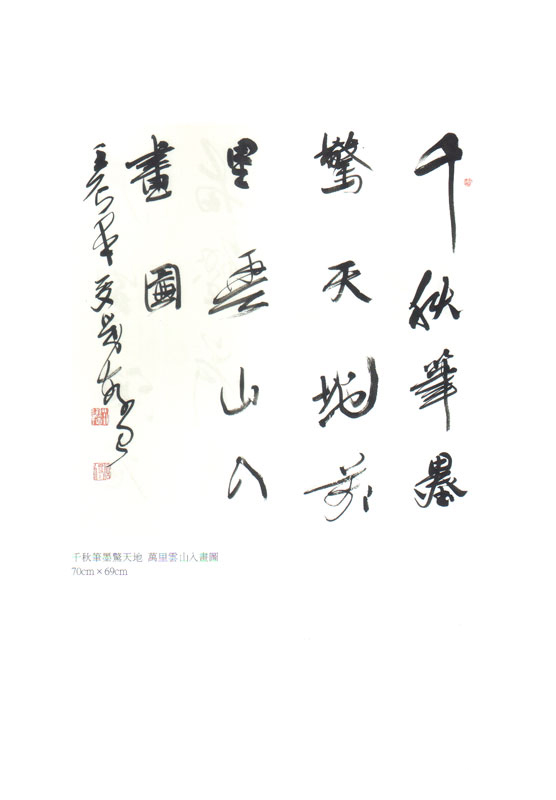 千秋筆墨
驚天地萬
里雲山入
畫圖
千秋筆墨驚天地 萬里雲山入畫圖
70cm×69cm